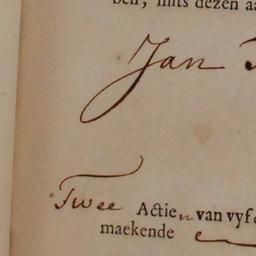 ben, mits dezen aa
Jan
Twee Actien van vyf
maekende